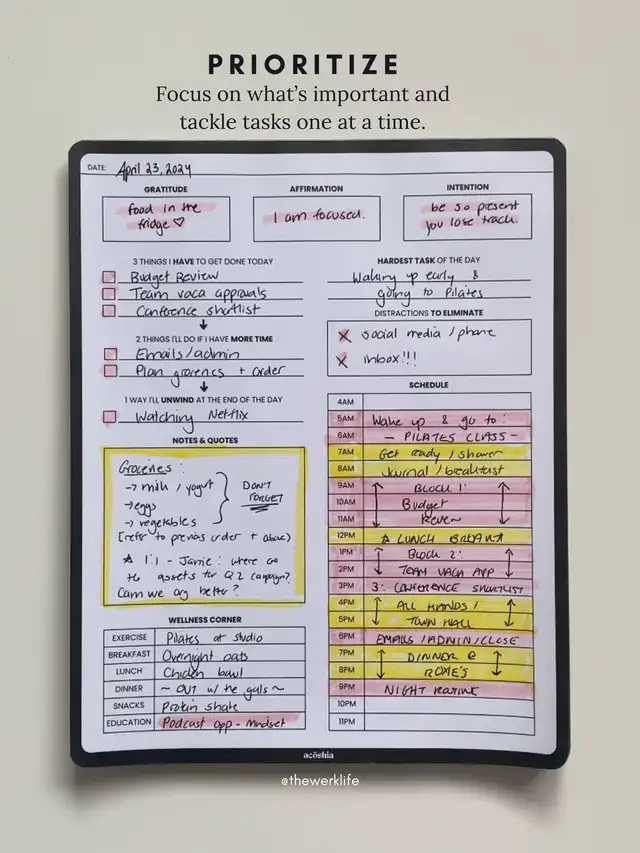 PRIORITIZE
Focus on what's important and
tackle tasks one at a time.
DATE: April 23, 2024
GRATITUDE
food in the
fridge ♡
AFFIRMATION
I am focused.
INTENTION
be so present
you lose track.
3 THINGS I HAVE TO GET DONE TODAY
Budget Review
Team vaca approvals
Conference shortlist
2 THINGS I'LL DO IF I HAVE MORE TIME
Emails/admin
Plan groceries + order
1 WAY I'LL UNWIND AT THE END OF THE DAY
Watching Netflix
NOTES & QUOTES
Groceries:
→ milk / yogurt
→ eggs
→ vegetables
DON'T
FORGET
[refer to previous order + above)
☆ 1:1 - Jamie: where are
the assets for Q2 campaign?
Can we org better?
WELLNESS CORNER
EXERCISE Pilates at studio
BREAKFAST Overnight oats
LUNCH Chicken bowl
DINNER ~ OUT w/ the gals ~
SNACKS Protein shake
EDUCATION Podcast app - mindset
HARDEST TASK OF THE DAY
Waking up early &
going to Pilates
DISTRACTIONS TO ELIMINATE
X social media / phone
X inbox!!!
SCHEDULE
4AM
5AM Wake up & go to:
6AM - PILATES CLASS -
7AM Get ready / shower
8AM Journal / breakfast
9AM BLOCK 1:
10AM Budget
11AM Review
12PM ☆ LUNCH BREAK ☆
1PM BLOCK 2:
2PM TEAM VACA APP
3PM 3: CONFERENCE SHORTLIST
4PM ALL HANDS /
5PM TOWN HALL
6PM EMAILS / ADMIN / CLOSE
7PM DINNER @
8PM
9PM NIGHT ROUTINE
10PM
11PM
acōshia
@thewerklife